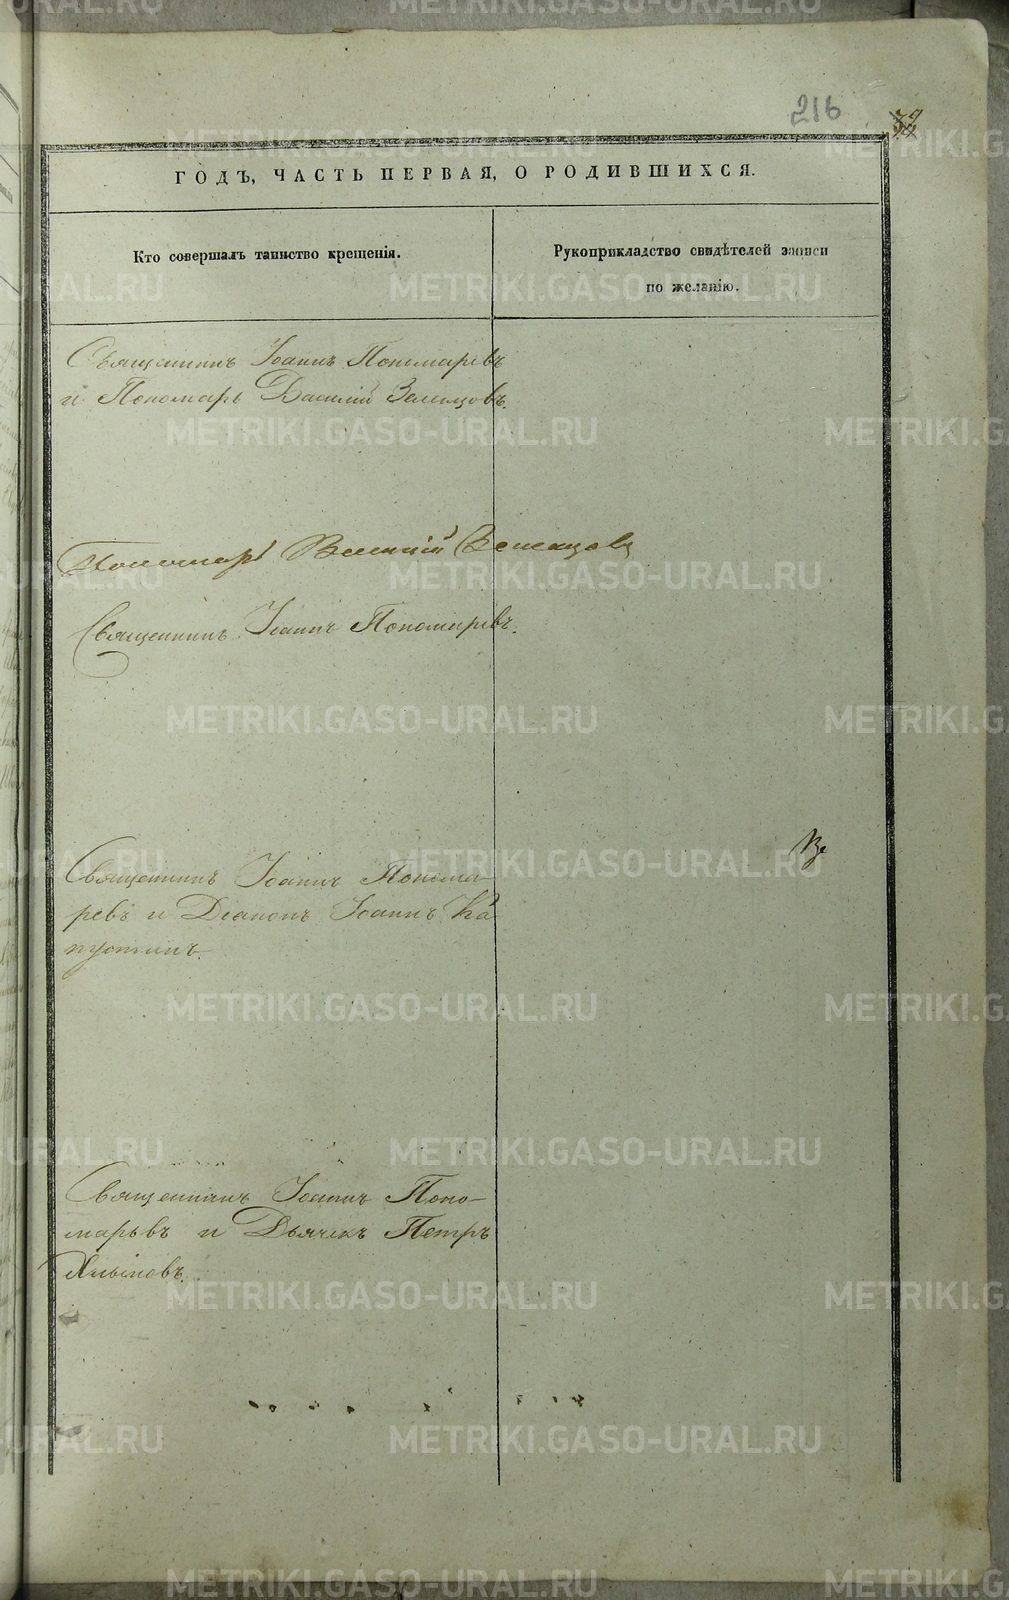 216
ГОДЪ, ЧАСТЬ ПЕРВАЯ, О РОДИВШИХСЯ.
Кто совершалъ таинство крещенія.
Рукоприкладство свидѣтелей записи
по желанію.
Священникъ Іоаннъ Пономаревъ
и Пономарь Василій Земляцовъ.
Пономарь Василій
Священникъ Іоаннъ Пономаревъ.
Священникъ Іоаннъ Понома-
ревъ и Діаконъ Іоаннъ Ка
пустинъ.
Священникъ Іоаннъ Поно-
марьвъ и Дьячекъ Петръ
METRIKI.GASO-URAL.RU